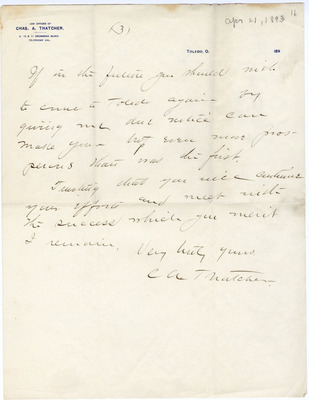 LAW OFFICES OF
CHAS. A. THATCHER,
TOLEDO, O. 189
(3)
apr 21, 1893 16
If in the future you should wish
to come to Toledo again by
giving me due notice can
make your trip even more pros-
perous than was the first.
Trusting that you will continue
your efforts and meet with
the success which you merit
I remain,
Very truly yours
C A Thatcher